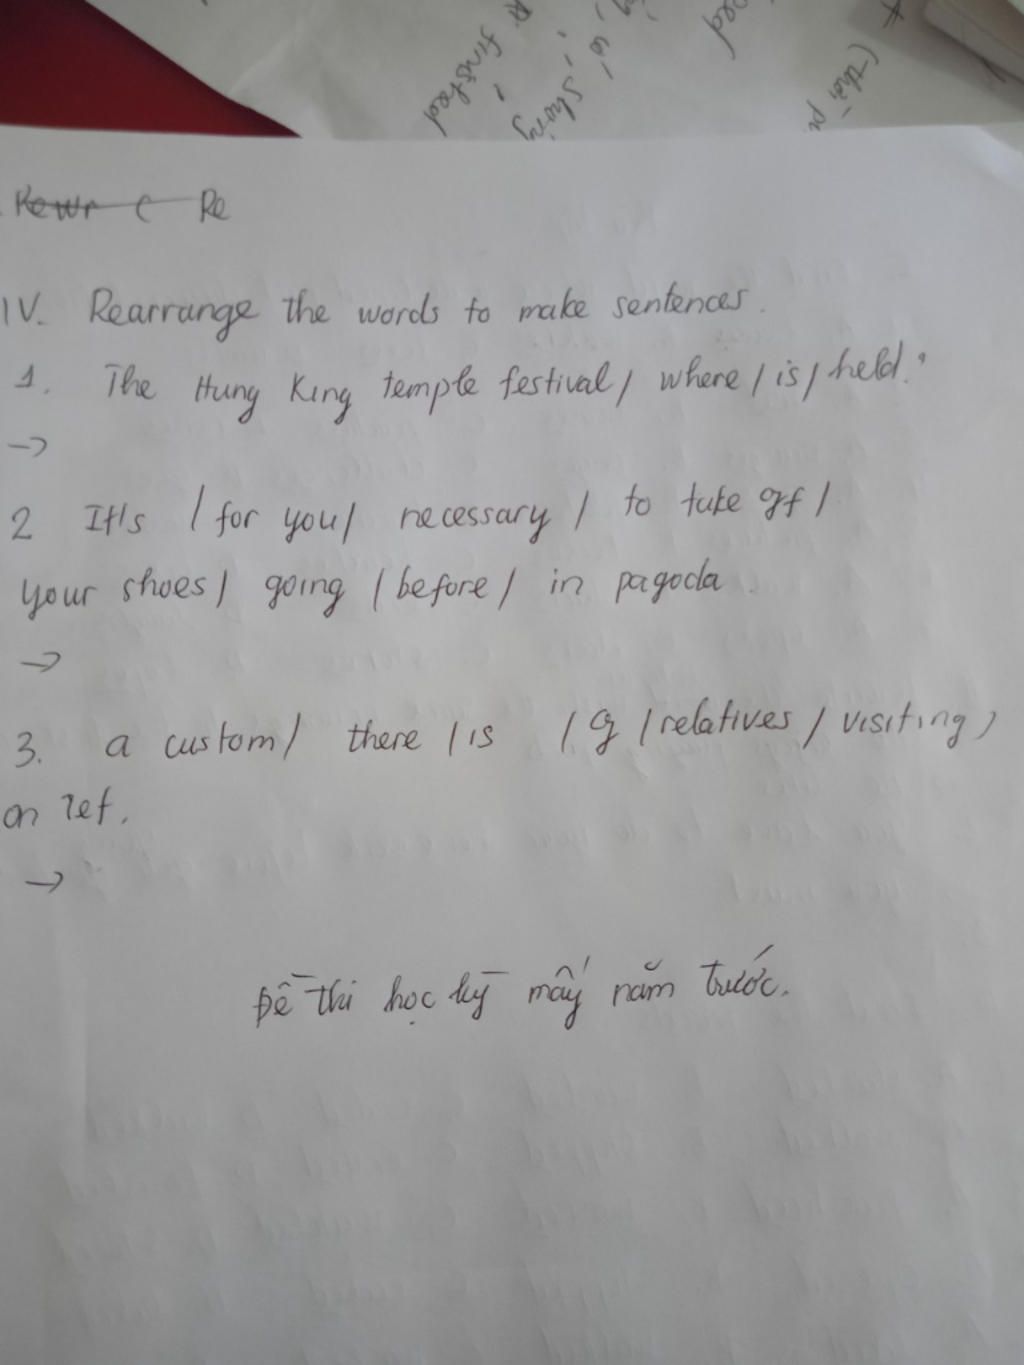 finished
shoing
(thì
Rewr ( Re
IV. Rearrange the words to make sentences.
1. The Hung King temple festival / where / is / held.
->
2 It's / for you / necessary / to take off /
your shoes / going / before / in pagoda.
->
3. a custom / there / is / of / relatives / visiting /
on Tet.
->
Đề thi học kỳ mấy năm trước.